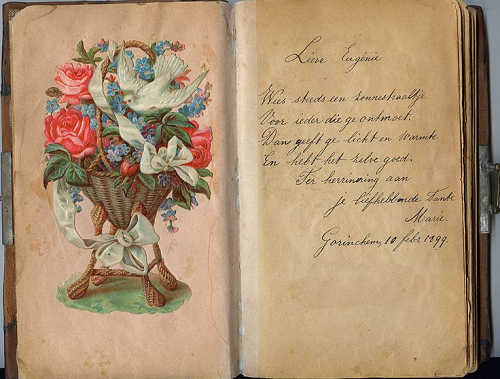 Lieve Eugénie
Wees steeds een zonnestraaltje
Voor ieder die ge ontmoet.
Dan geeft ge licht en warmte
En hebt het zelve goed.
Ter herinnering aan
je liefhebbende tante
Marie.
Gorinchem, 10 febr 1899.